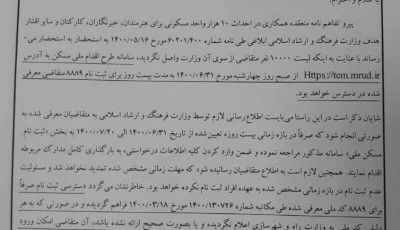 پیرو تفاهم نامه منعقده همکاری در احداث ۱۰ هزار واحد مسکونی برای هنرمندان، خبرنگاران، کارکنان و سایر اقشار
هدف وزارت فرهنگ و ارشاد اسلامی ابلاغی طی نامه شماره ۶۰۲۰۱/۴۰۰ مورخ ۱۴۰۰/۰۵/۱۶ به استحضار به استحضار می-
رساند با عنایت به اینکه لیست ۱۰۰۰۰ نفر متقاضی از سوی آن وزارت واصل نگردید، سامانه طرح اقدام ملی مسکن به آدرس
Https://tem.mrud.ir از صبح روز چهارشنبه مورخ ۱۴۰۰/۰۶/۳۱ به مدت بیست روز برای ثبت نام ۸۸۸۹ متقاضی معرفی
شده در دسترس خواهد بود.
شایان ذکر است در این راستا می‌بایست اطلاع رسانی لازم توسط وزارت فرهنگ و ارشاد اسلامی به متقاضیان معرفی شده به
صورتی انجام شود که صرفاً در بازه زمانی بیست روزه تعیین شده از تاریخ ۱۴۰۰/۰۶/۳۱ الی ۱۴۰۰/۰۷/۲۰ به بخش «ثبت نام
مسکن ملی» سامانه مذکور مراجعه نموده و ضمن وارد کردن کلیه اطلاعات درخواستی، به بارگذاری کامل مدارک مربوطه
اقدام نمایند. همچنین لازم است به اطلاع متقاضیان رسانیده شود که مهلت زمانی مشخص شده تمدید نخواهد شد و مسئولیت
عدم ثبت نام در بازه زمانی مشخص شده به عهده افراد ثبت نام نکرده خواهد بود. خاطرنشان می‌گردد دسترسی ثبت نام صرفاً
برای ۸۸۸۹ کد ملی معرفی شده طی مکاتبه شماره ۱۴۰۰/۱۳۰۷۲۶ مورخ ۱۴۰۰/۰۳/۱۸ فراهم گردیده و در صورتی که به هر
کد ملی به وزارت راه و شهرسازی اعلام نگردیده و یا بصورت صحیح ارائه نشده باشد، آن متقاضی امکان ورود